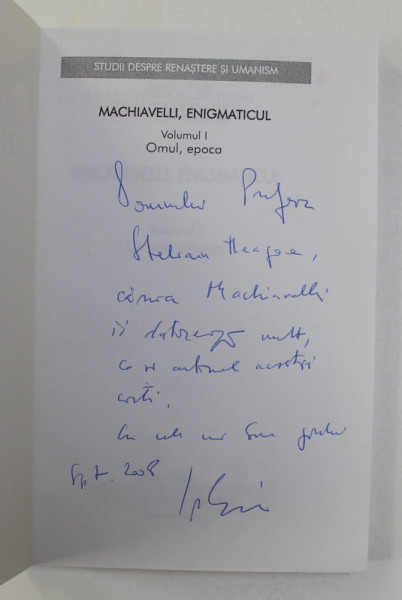 STUDII DESPRE RENAȘTERE ȘI UMANISM
MACHIAVELLI, ENIGMATICUL
Volumul I
Omul, epoca
Domnului Profesor
Stelian Neagoe,
căruia Machiavelli
îi datorează mult,
ca și autorul acestei
cărți.
Cu cele mai bune gânduri
Sept. 2008